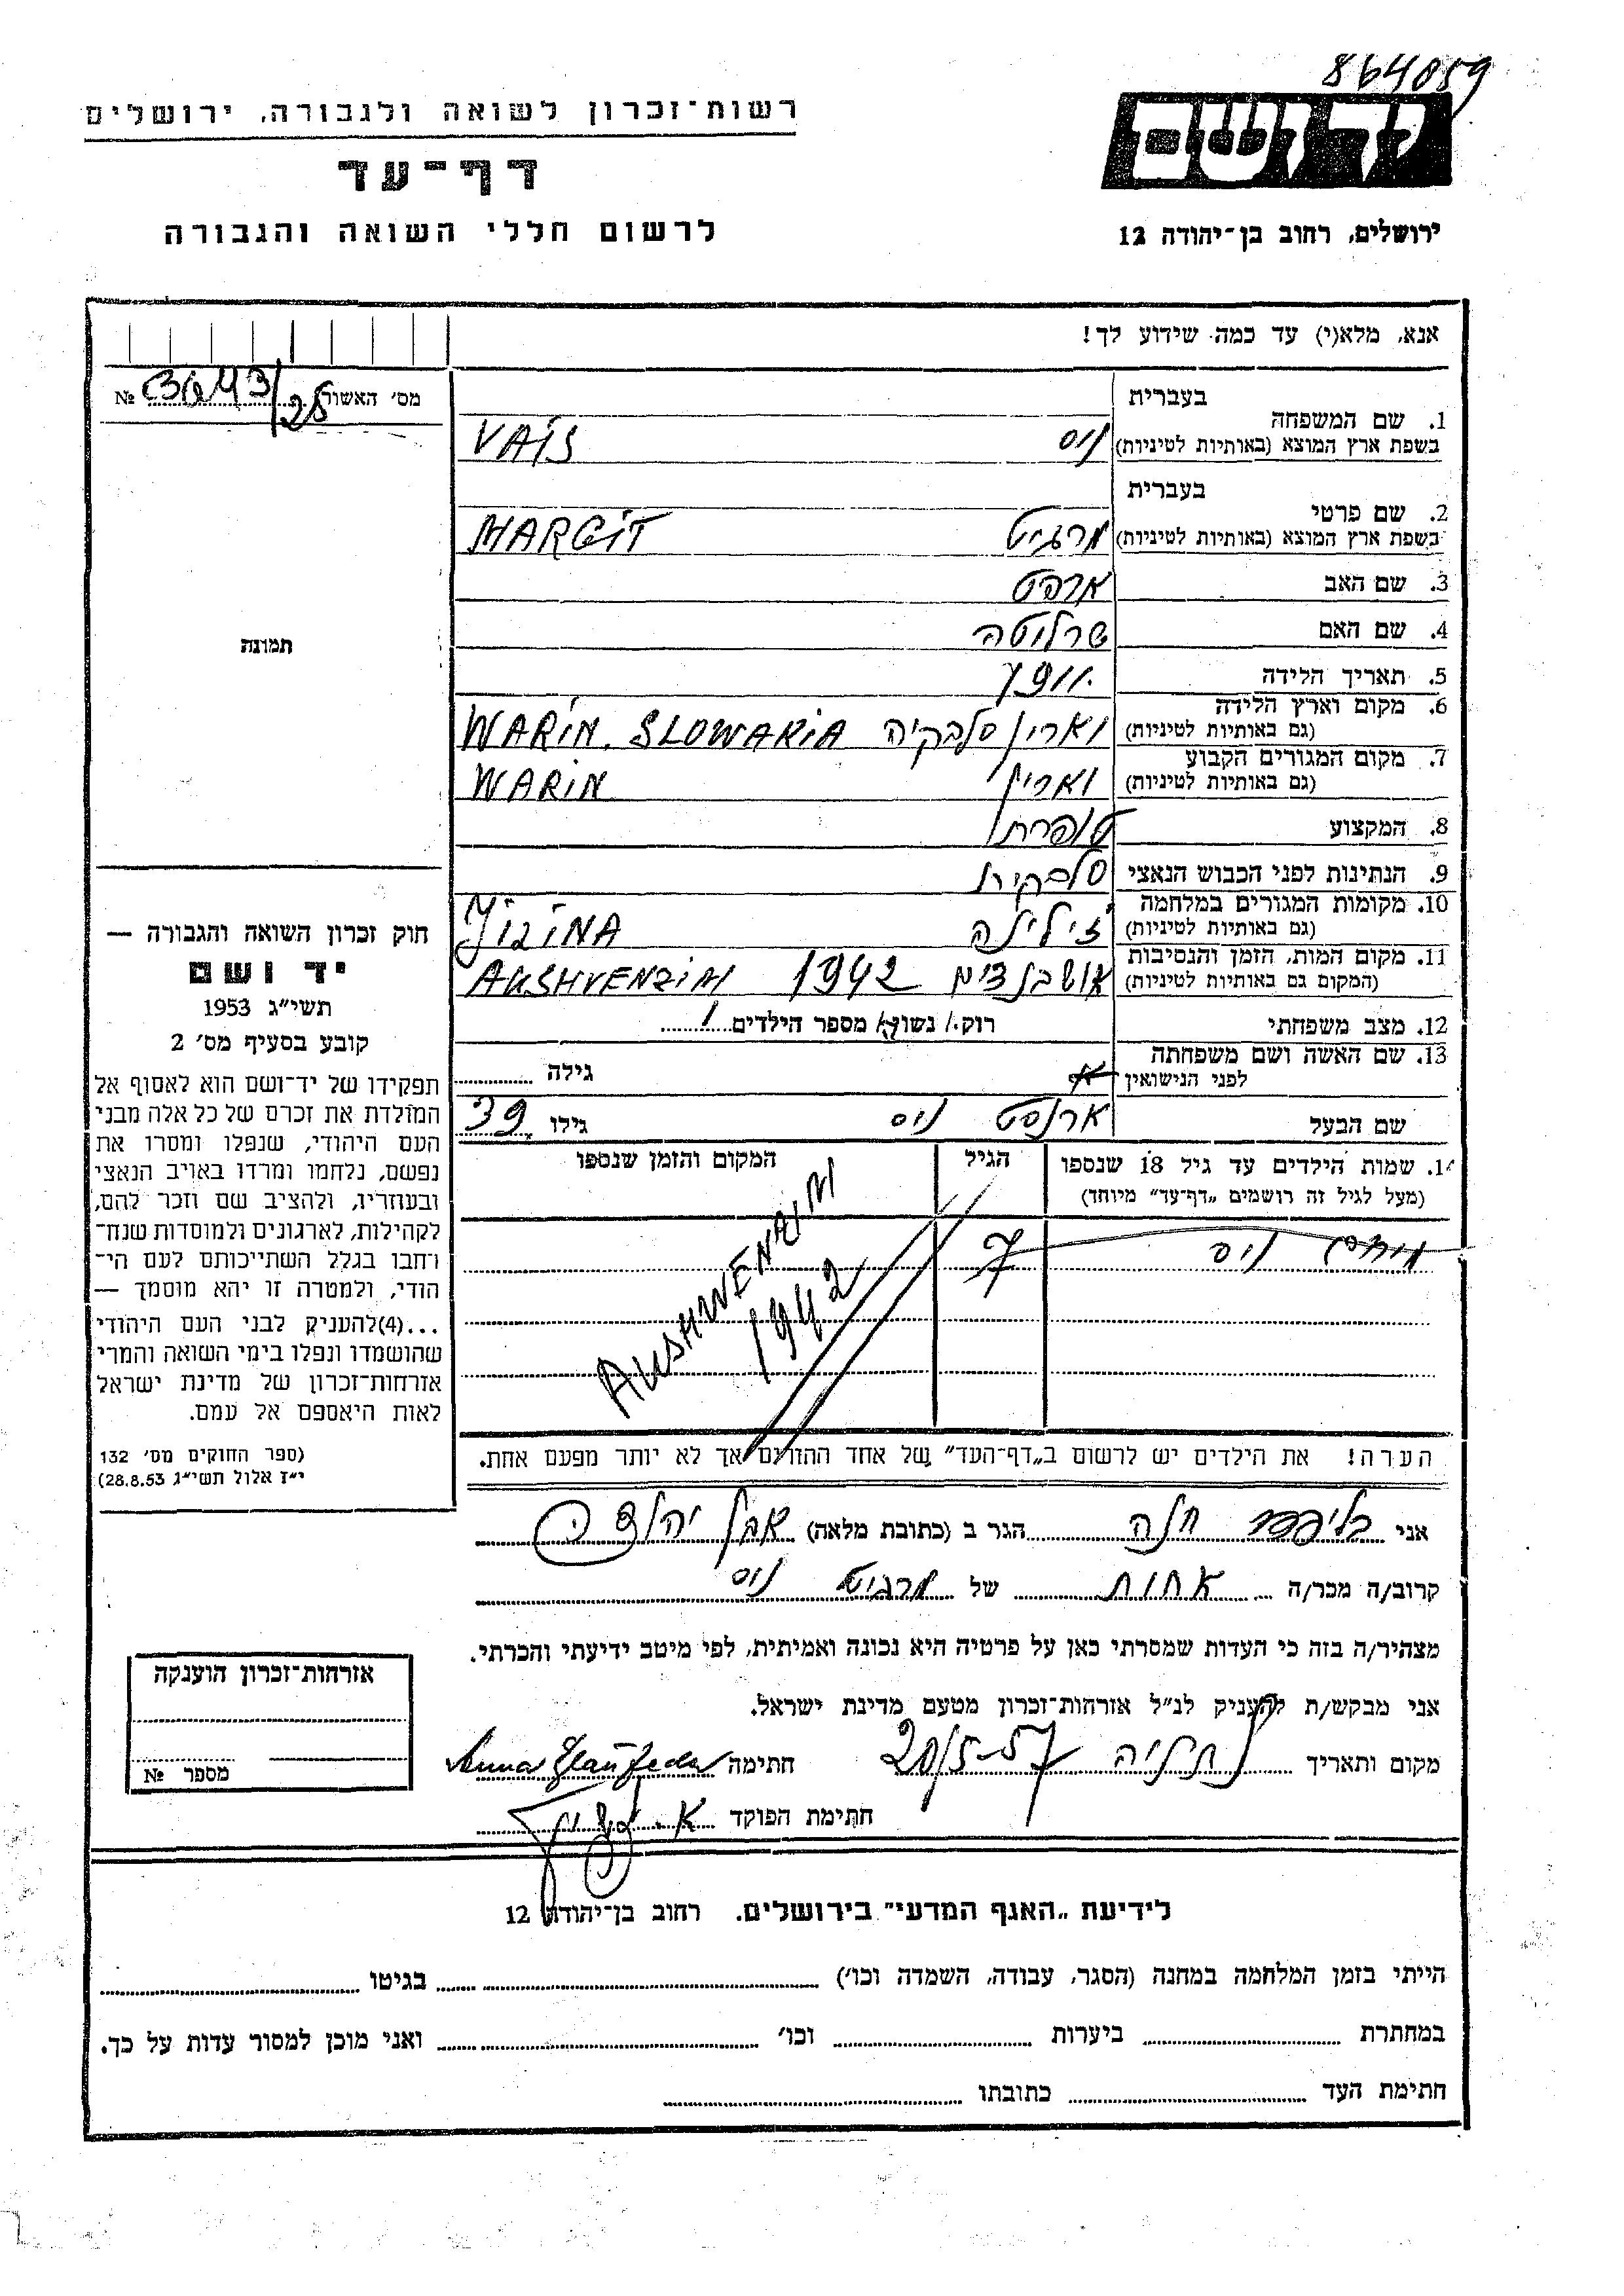 864089
רשות־זכרון לשואה ולגבורה, ירושלים
יד ושם
דף־עד
לרשום חללי השואה והגבורה
ירושלים, רחוב בן־יהודה 12
אנא, מלא(י) עד כמה שידוע לך!
מס׳ האשור
№
1. שם המשפחה בעברית
בשפת ארץ המוצא (באותיות לטיניות) וויס VAIS
2. שם פרטי בעברית
בשפת ארץ המוצא (באותיות לטיניות) מרגיט MARGIT
3. שם האב
4. שם האם שרלוטה
5. תאריך הלידה
6. מקום וארץ הלידה
(גם באותיות לטיניות) ווארין סלבקיה WARIN. SLOWAKIA
7. מקום המגורים הקבוע
(גם באותיות לטיניות) ווארין WARIN
8. המקצוע תופרת
9. הנתינות לפני הכבוש הנאצי סלבקית
10. מקומות המגורים במלחמה
(גם באותיות לטיניות) זילינה
11. מקום המות, הזמן והנסיבות
(המקום גם באותיות לטיניות) אושבנצים 1942 AUSHVENZIM
12. מצב משפחתי רוק/ נשוי/ מספר הילדים 1
13. שם האשה ושם משפחתה
לפני הנישואין גילה
שם הבעל ארנסט וויס גילו 39
14. שמות הילדים עד גיל 18 שנספו הגיל המקום והזמן שנספו
(מעל לגיל זה רושמים „דף־עד״ מיוחד)
וויס 7 AUSHWENZIM
1942
הערה! את הילדים יש לרשום ב„דף־העד״ של אחד ההורים אך לא יותר מפעם אחת.
תמונה
חוק זכרון השואה והגבורה —
יד ושם
תשי״ג 1953
קובע בסעיף מס׳ 2
תפקידו של יד־ושם הוא לאסוף אל
המולדת את זכרם של כל אלה מבני
העם היהודי, שנפלו ומסרו את
נפשם, נלחמו ומרדו באויב הנאצי
ובעוזריו, ולהציב שם וזכר להם,
לקהילות, לארגונים ולמוסדות שנח־
רחבו בגלל השתייכותם לעם הי־
הודי, ולמטרה זו יהא מוסמך —
...(4)להעניק לבני העם היהודי
שהושמדו ונפלו בימי השואה והמרי
אזרחות־זכרון של מדינת ישראל
לאות היאספם אל עמם.
(ספר החוקים מס׳ 132
י״ז אלול תשי״ג 28.8.53)
אני חנה הגר ב (כתובת מלאה) אבן יהודה
קרוב/ה מכר/ה אחות של מרגיט וויס
מצהיר/ה בזה כי העדות שמסרתי כאן על פרטיה היא נכונה ואמיתית, לפי מיטב ידיעתי והכרתי.
אני מבקש/ת להעניק לנ״ל אזרחות־זכרון מטעם מדינת ישראל.
מקום ותאריך נתניה 20/5-57 חתימה Anna
חתימת הפוקד
אזרחות־זכרון הוענקה
מספר №
לידיעת „האגף המדעי״ בירושלים. רחוב בן־יהודה 12
הייתי בזמן המלחמה במחנה (הסגר, עבודה, השמדה וכו׳) בגיטו
במחתרת ביערות וכו׳ ואני מוכן למסור עדות על כך.
חתימת העד כתובתו